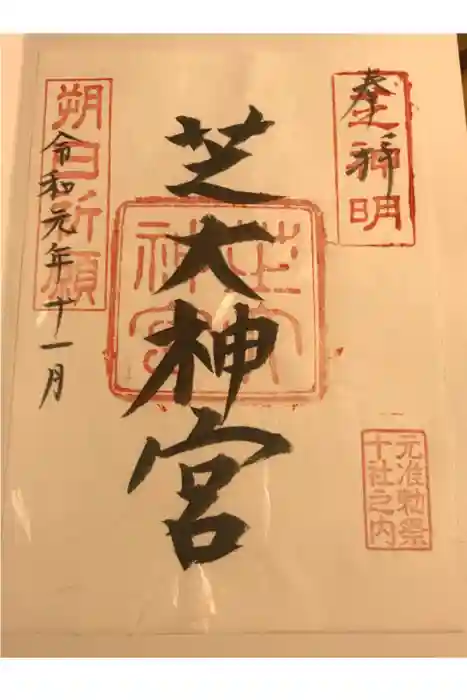 奉拝
芝神明
芝大神宮
芝大
神宮
朔日祈願
令和元年十一月
元准勅祭
十社之内